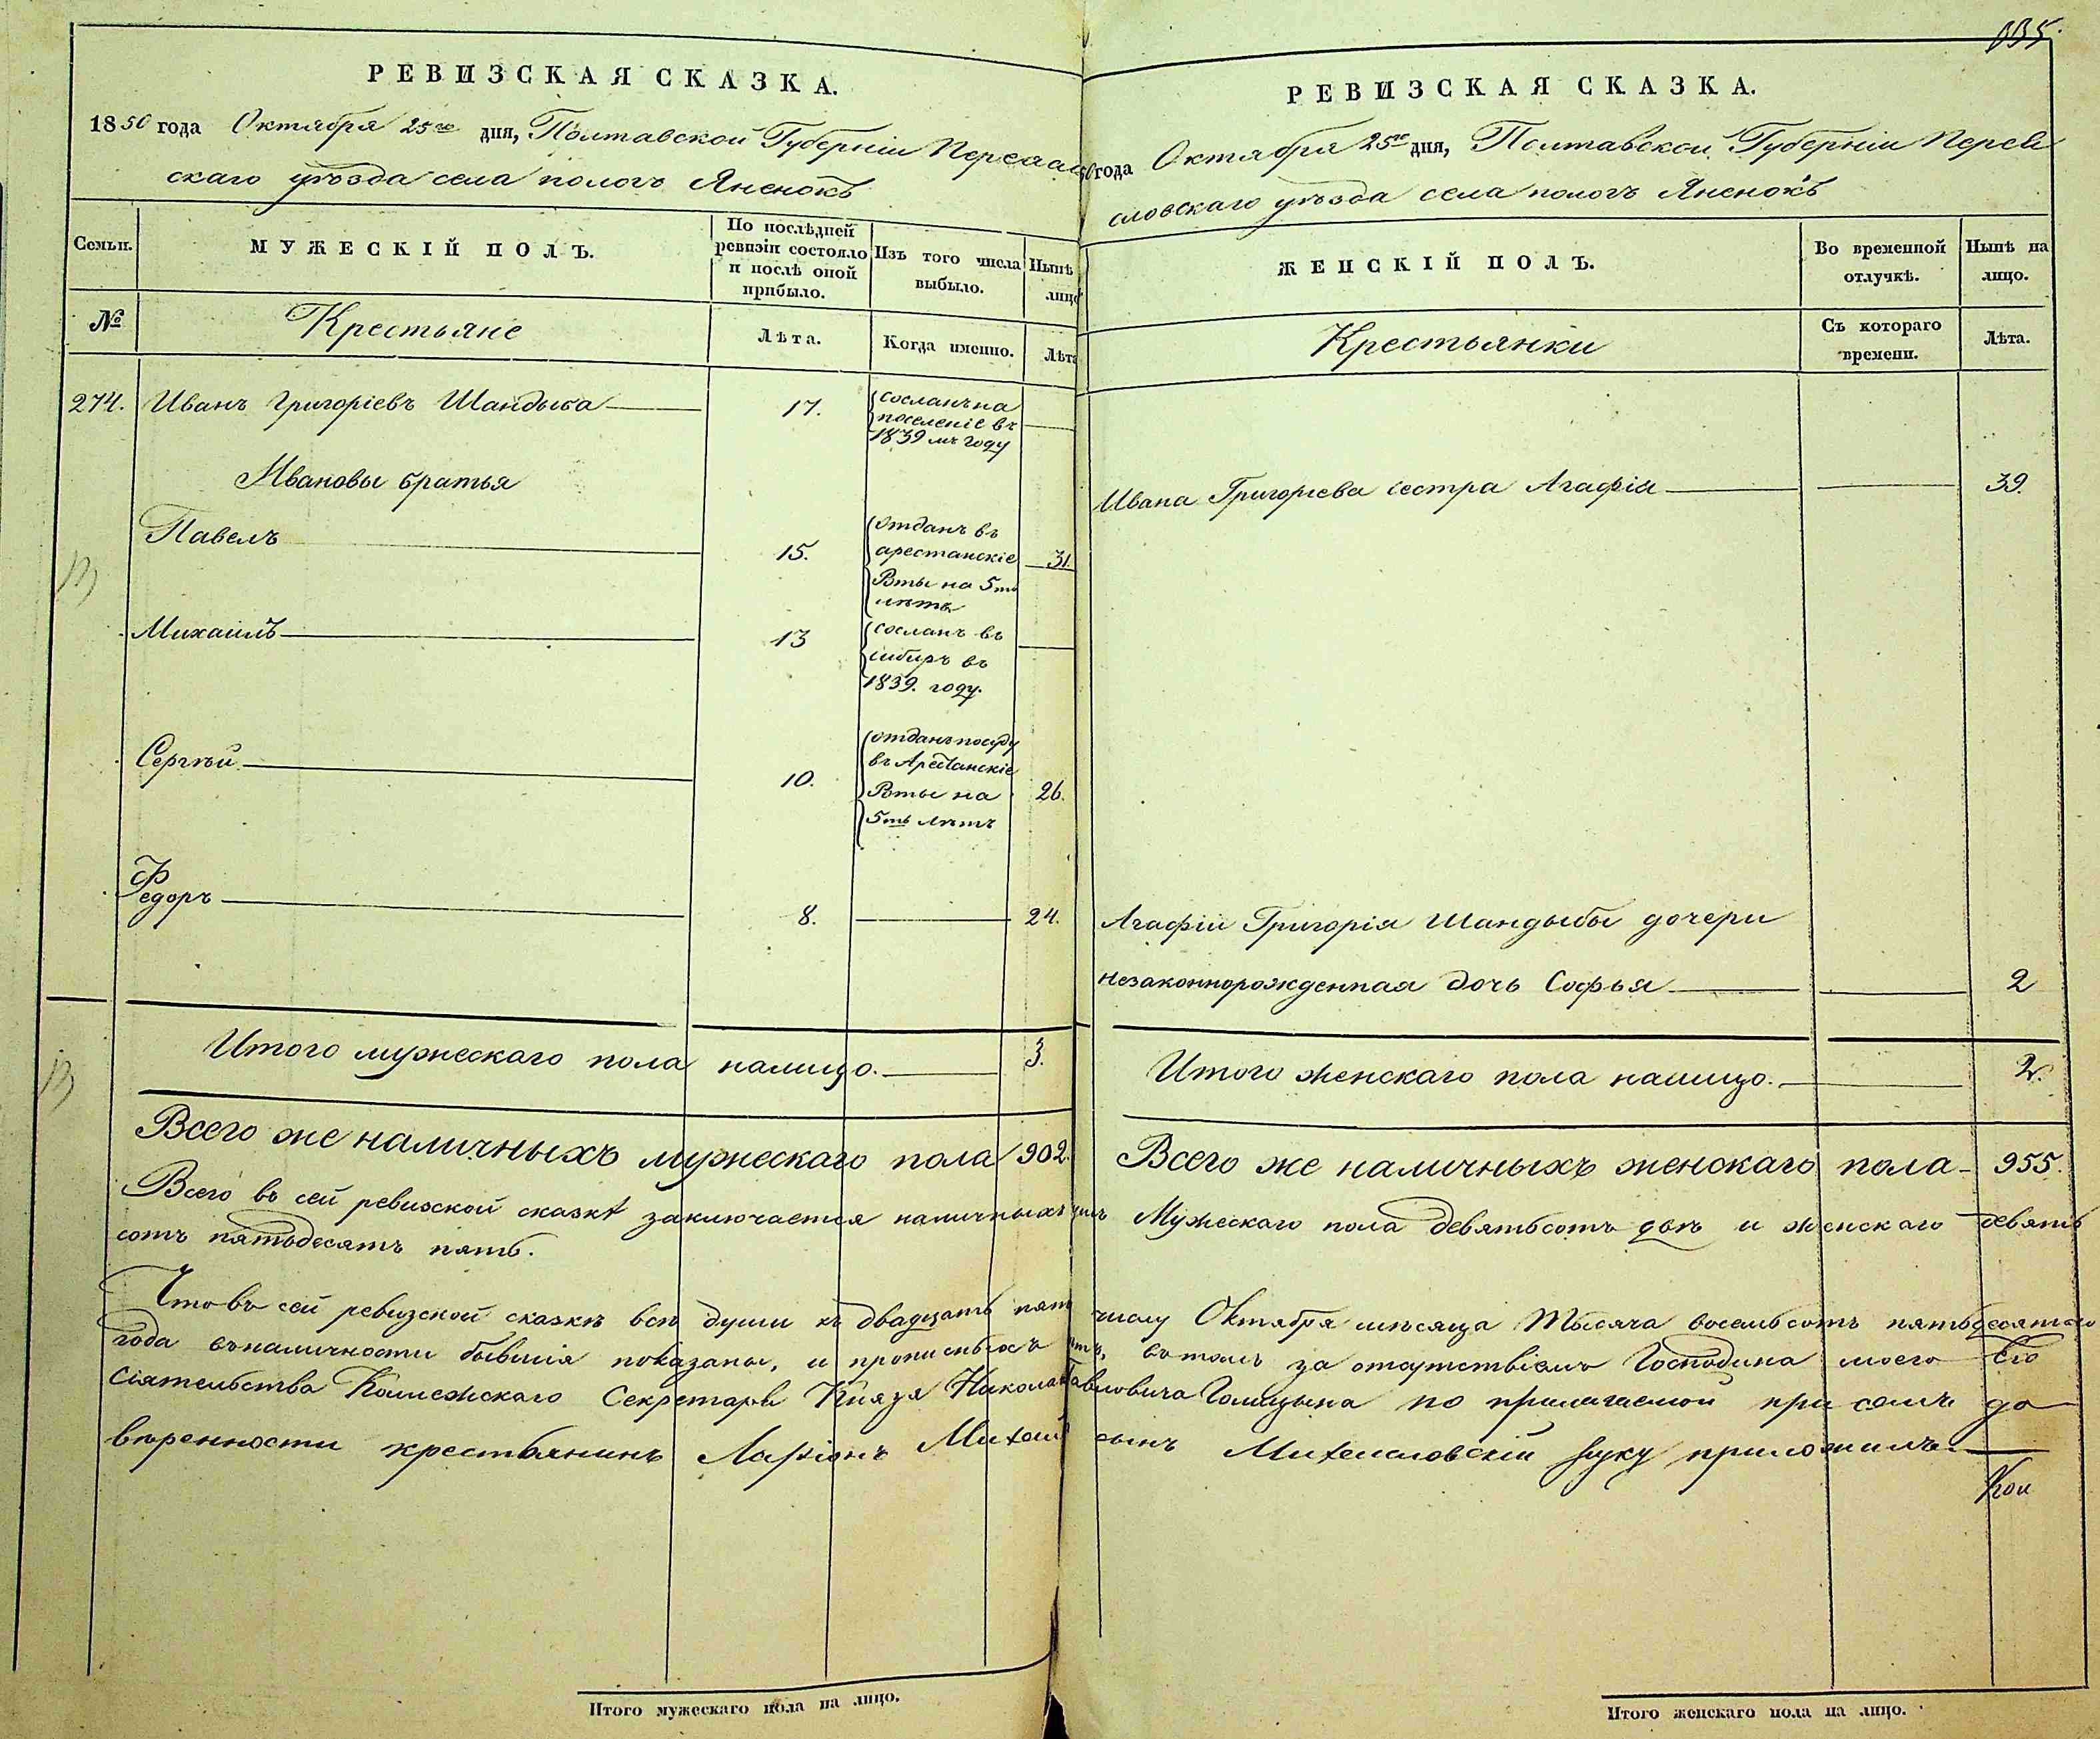 135.
РЕВИЗСКАЯ СКАЗКА.
1850 года Октября 25го дня, Полтавской Губерніи Переяс
скаго уѣзда села пологъ Яненокъ
Семьи.
МУЖЕСКІЙ ПОЛЪ.
По послѣдней
ревизіи состояло
и послѣ оной
прибыло.
Изъ того числа
выбыло.
Нынѣ
лицо
№
Крестьяне
Лѣта.
Когда именно.
Лѣта
274. Иванъ Григоріевъ Шандыба 17. сосланъ на
поселеніе въ
1839 мъ году
Ивановы братья
Павелъ 15. отданъ въ
арестанскіе 31.
Рты на 5ть
лѣтъ
Михаилъ 13 сосланъ въ
сибирь въ
1839. году.
Сергѣй 10. отданъ по суду
въ Арестанскіе
Рты на 26.
5ть лѣтъ
Федоръ 8. 24.
Итого мужескаго пола налицо. 3.
Всего же наличныхъ мужескаго пола 902.
РЕВИЗСКАЯ СКАЗКА.
50 года Октября 25го дня, Полтавской Губерніи Перея
словскаго уѣзда села пологъ Яненокъ
ЖЕНСКІЙ ПОЛЪ.
Во временной
отлучкѣ.
Нынѣ на
лицо.
Крестьянки
Съ котораго
времени.
Лѣта.
Ивана Григорьева сестра Агафія 39.
Агафіи Григорія Шандыбы дочери
незаконнорожденная дочь Софья 2
Итого женскаго пола налицо. 2.
Всего же наличныхъ женскаго пола 955.
Всего въ сей ревизской сказкѣ заключается наличныхъ душъ Мужескаго пола девятьсотъ двѣ и женскаго девять
сотъ пятьдесятъ пять.
Что въ сей ревизской сказкѣ всѣ души къ двадцать пято числу Октября мѣсяца Тысяча восемьсотъ пятьдесятаго
года въ наличности бывшія показаны, и прописныхъ нѣтъ, въ томъ за отсутствіемъ Господина моего Его
Сіятельства Колежскаго Секретаря Князя Николая Павловича Голицына по прилагаемой при семъ до
вѣренности крестьянинъ Ларіонъ Михаил сынъ Михайловскій руку приложилъ.
Кои
Итого мужескаго пола на лицо.
Итого женскаго пола на лицо.